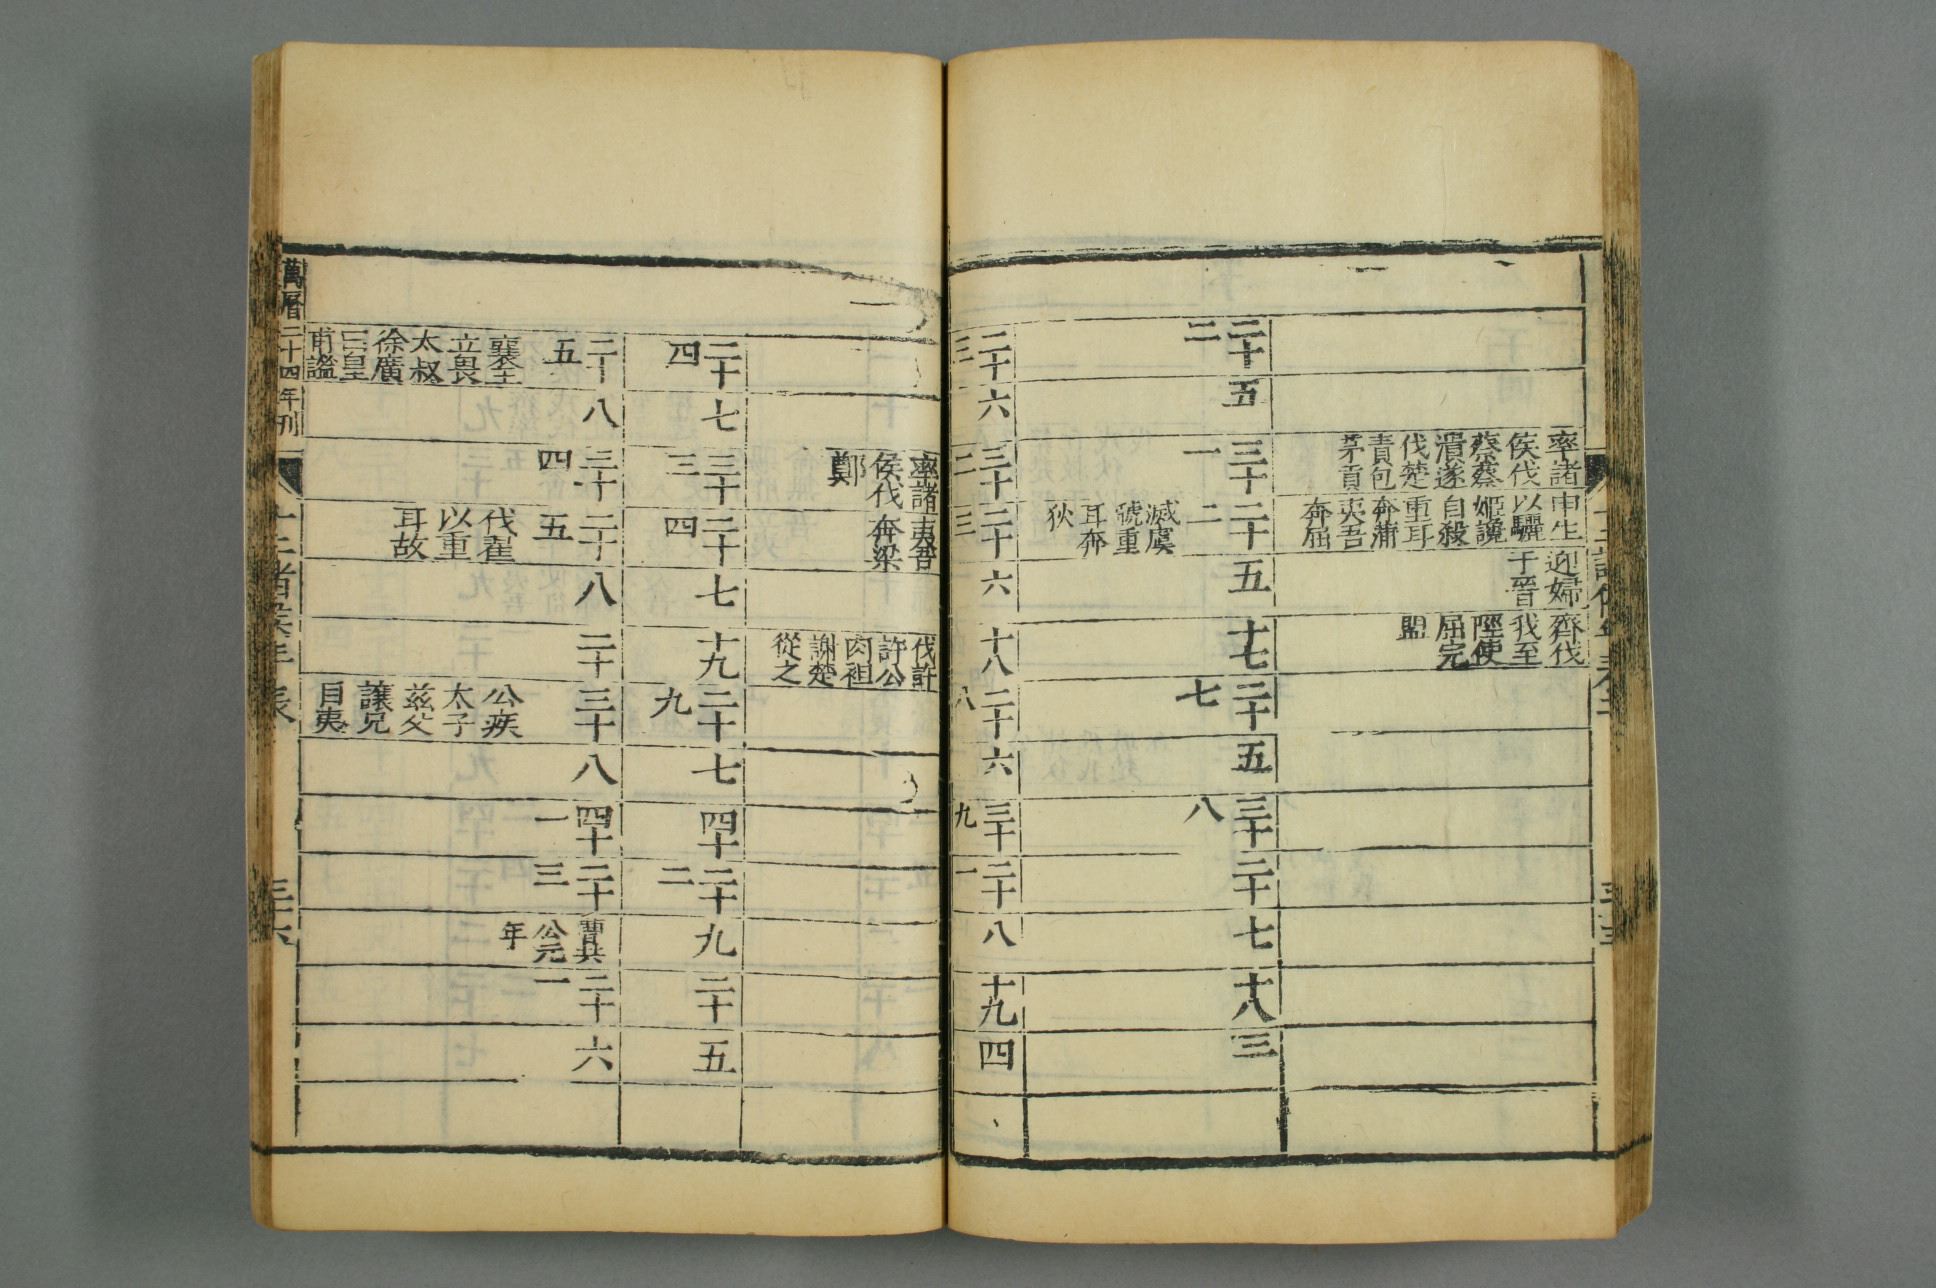 率諸侯伐蔡蔡潰遂伐楚責包茅貢
申生以驪姬讒自殺重耳奔蒲夷吾奔屈
迎婦于晉
齊伐我至陘使屈完盟
二十二
五
三十一
二十二
滅虞虢重耳奔狄
五
十七
二十七
五
三十八
二十
七
十八
三
二十三
六
三十二
二十三
六
十八
二十八
六
三十九
二十一
八
十九
四
率諸侯伐鄭
夷吾奔梁
伐許許公肉袒謝楚從之
二十四
七
三十三
二十四
七
十九
二十九
七
四十
二十二
九
二十
五
二十五
襄王立畏太叔徐廣曰皇甫謐
八
三十四
二十五
伐翟以重耳故
八
二十
三十
公疾太子茲父讓兄目夷
八
四十一
二十三
曹共公元年
二十一
六
萬曆二十四年刊
十二諸侯年表